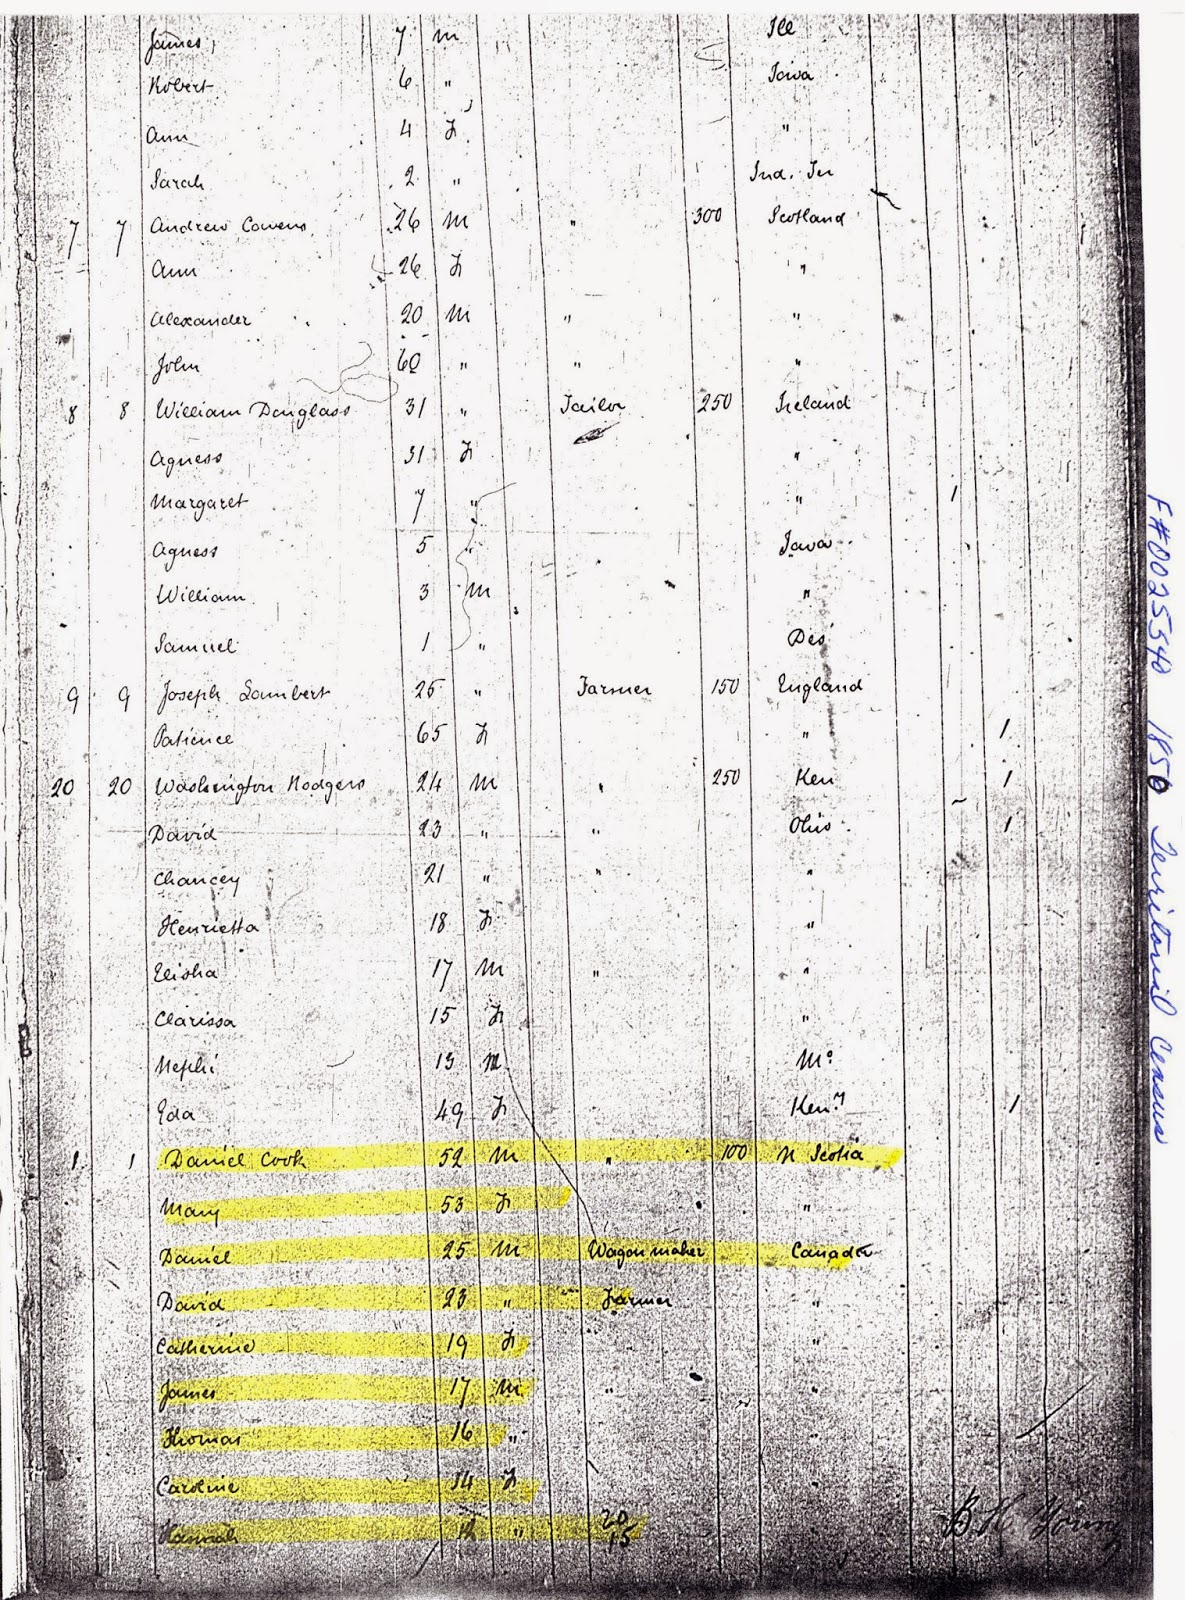 James, 7 m Ill
Robert 6 " Iowa
Ann 4 F "
Sarah 2 " Ind. Ter
7 7 Andrew Cowens 26 m " 300 Scotland
Ann 26 F "
Alexander 20 m " "
John 60 " " "
8 8 William Douglass 31 " Tailor 250 Ireland
Agness 31 F "
Margaret 7 " " 1
Agness 5 " Iowa
William 3 m "
Samuel 1 " Des
9 9 Joseph Lambert 25 " Farmer 150 England
Patience 65 F " 1
20 20 Washington Rodgers 24 m " 250 Ken 1
David 23 " " Ohio 1
Chancey 21 " " "
Henrietta 18 F "
Elisha 17 m " "
Clarissa 15 F "
Nephi 13 m Mo
Eda 49 F Ken.y 1
1 1 Daniel Cook 52 m " 100 N Scotia
Mary 53 F "
Daniel 25 m Wagon maker Canada
David 23 " Farmer "
Catherine 19 F "
James 17 m " "
Thomas 16 " "
Caroline 14 F "
Hannah 12 " 20
15
B. H. Young
F#0025540 1850 Territorial Census